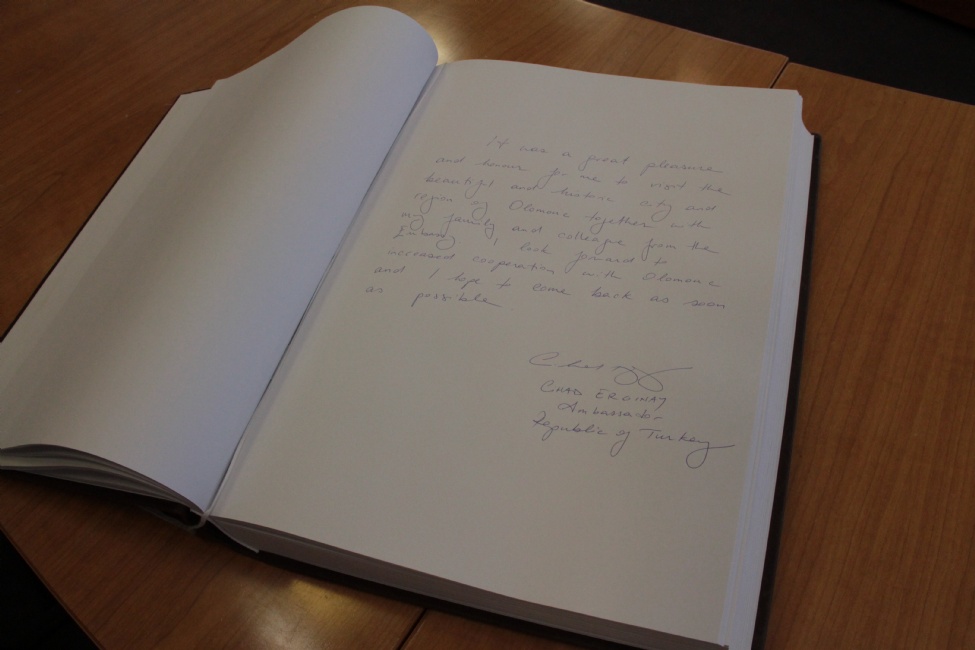 It was a great pleasure
and honour for me to visit the
beautiful and historic city and
region of Olomouc together with
my family and colleague from the
Embassy. I look forward to
increased cooperation with Olomouc
and I hope to come back as soon
as possible
Ambassador
Republic of Turkey